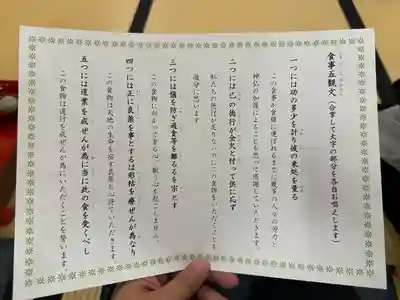 食事五観文（合掌して太字の部分を各自お唱えします）
一つには功の多少を計り彼の来処を量る
この食事が食膳に運ばれるまでに幾多の人々の労力と
神仏の加護によることを思って感謝していただきます。
二つには己の徳行の全欠と忖って供に応ず
私たちの徳行が足りないのにこの食物をいただくことを
過分に思います。
三つには心を防ぎ過貪等を離るるを宗とす
この食物に向かって貪る心、厭う心を起こしません。
四つには正に良薬を事とするは形枯を療ぜんが為なり
この食物は天地の生命を宿す良薬と心得ていただきます。
五つには道業を成ぜんが為に当に此の食を受くべし
この食物は道行を成ぜんが為にいただくことを誓います。